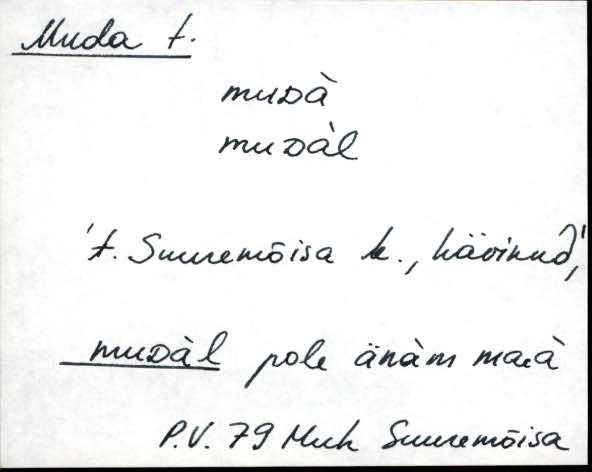 Muda t.
muᴅà
muᴅàl
't. Suuremõisa k., hävinud,'
muᴅàl pole änàm maià
P.V. 79 Muh Suuremõisa